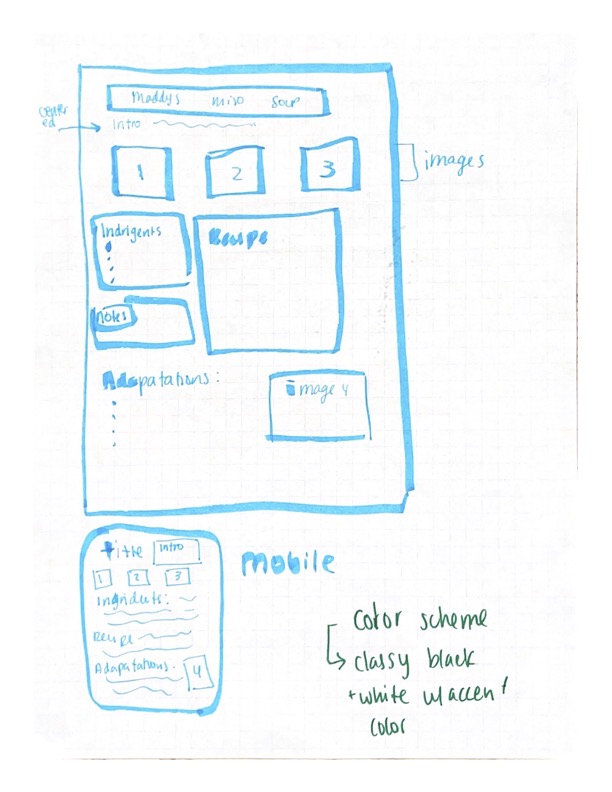 Maddys miso soup
center
ed
Intro
1 2 3
images
Indrigents
Recipe
Notes
Adapatations:
image 4
Title Intro
1 2 3
Ingridients:
Recipe
Adapatations.
4
mobile
color scheme
classy black
+ white w/accent
color